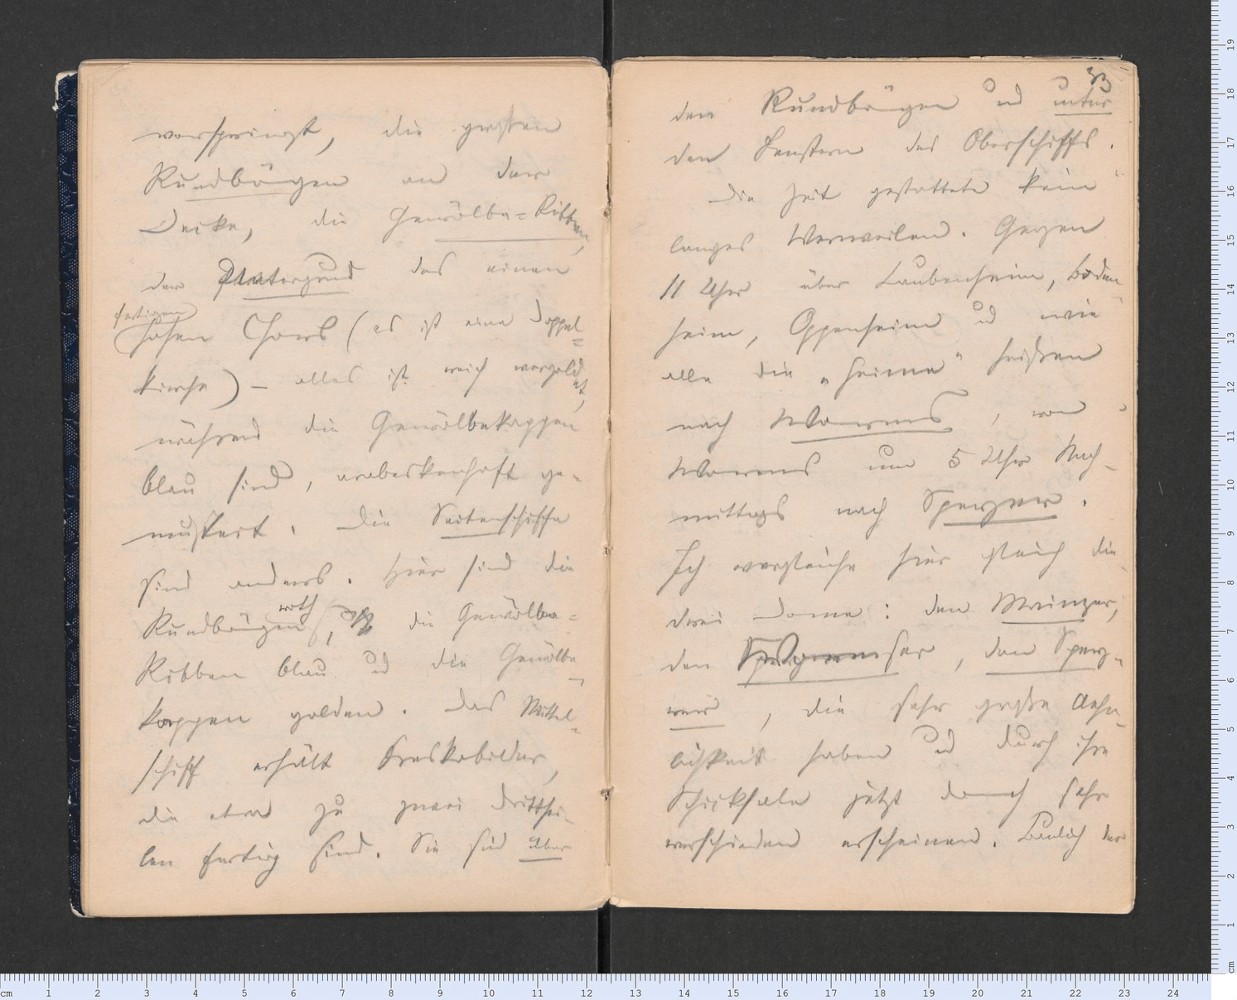 vorspringt, die großen
Rundbögen an der
Decke, die Gewölbe-Ribben,
der Hintergrund des einen
hohen Chors (es ist eine Doppel-
kirche) – alles ist reich vergoldet,
während die Gewölbekappen
blau sind, arabeskenhaft ge-
mustert. Die Seitenschiffe
sind anders. Hier sind die
Rundbögen roth, die Gewölbe-
Ribben blau und die Gewölbe-
kappen golden. Das Mittel-
schiff erhält Freskobilder,
die etwa zu zwei Dritthei-
len fertig sind. Sie sind über
33
den Rundbögen und unter
den Fenstern des Oberschiffs.
Die Zeit gestattete kein
langes Verweilen. Gegen
11 Uhr über Laubenheim, Boden-
heim, Oppenheim und wie
alle die „heime" heißen
nach Worms, von
Worms um 5 Uhr Nach-
mittags nach Speyer.
Ich vergleiche hier gleich die
drei Dome: den Mainzer,
den Wormser, den Spey-
rer, die sehr große Aehn-
lichkeit haben und durch ihre
Schicksale jetzt doch sehr
verschieden erscheinen. Baulich der